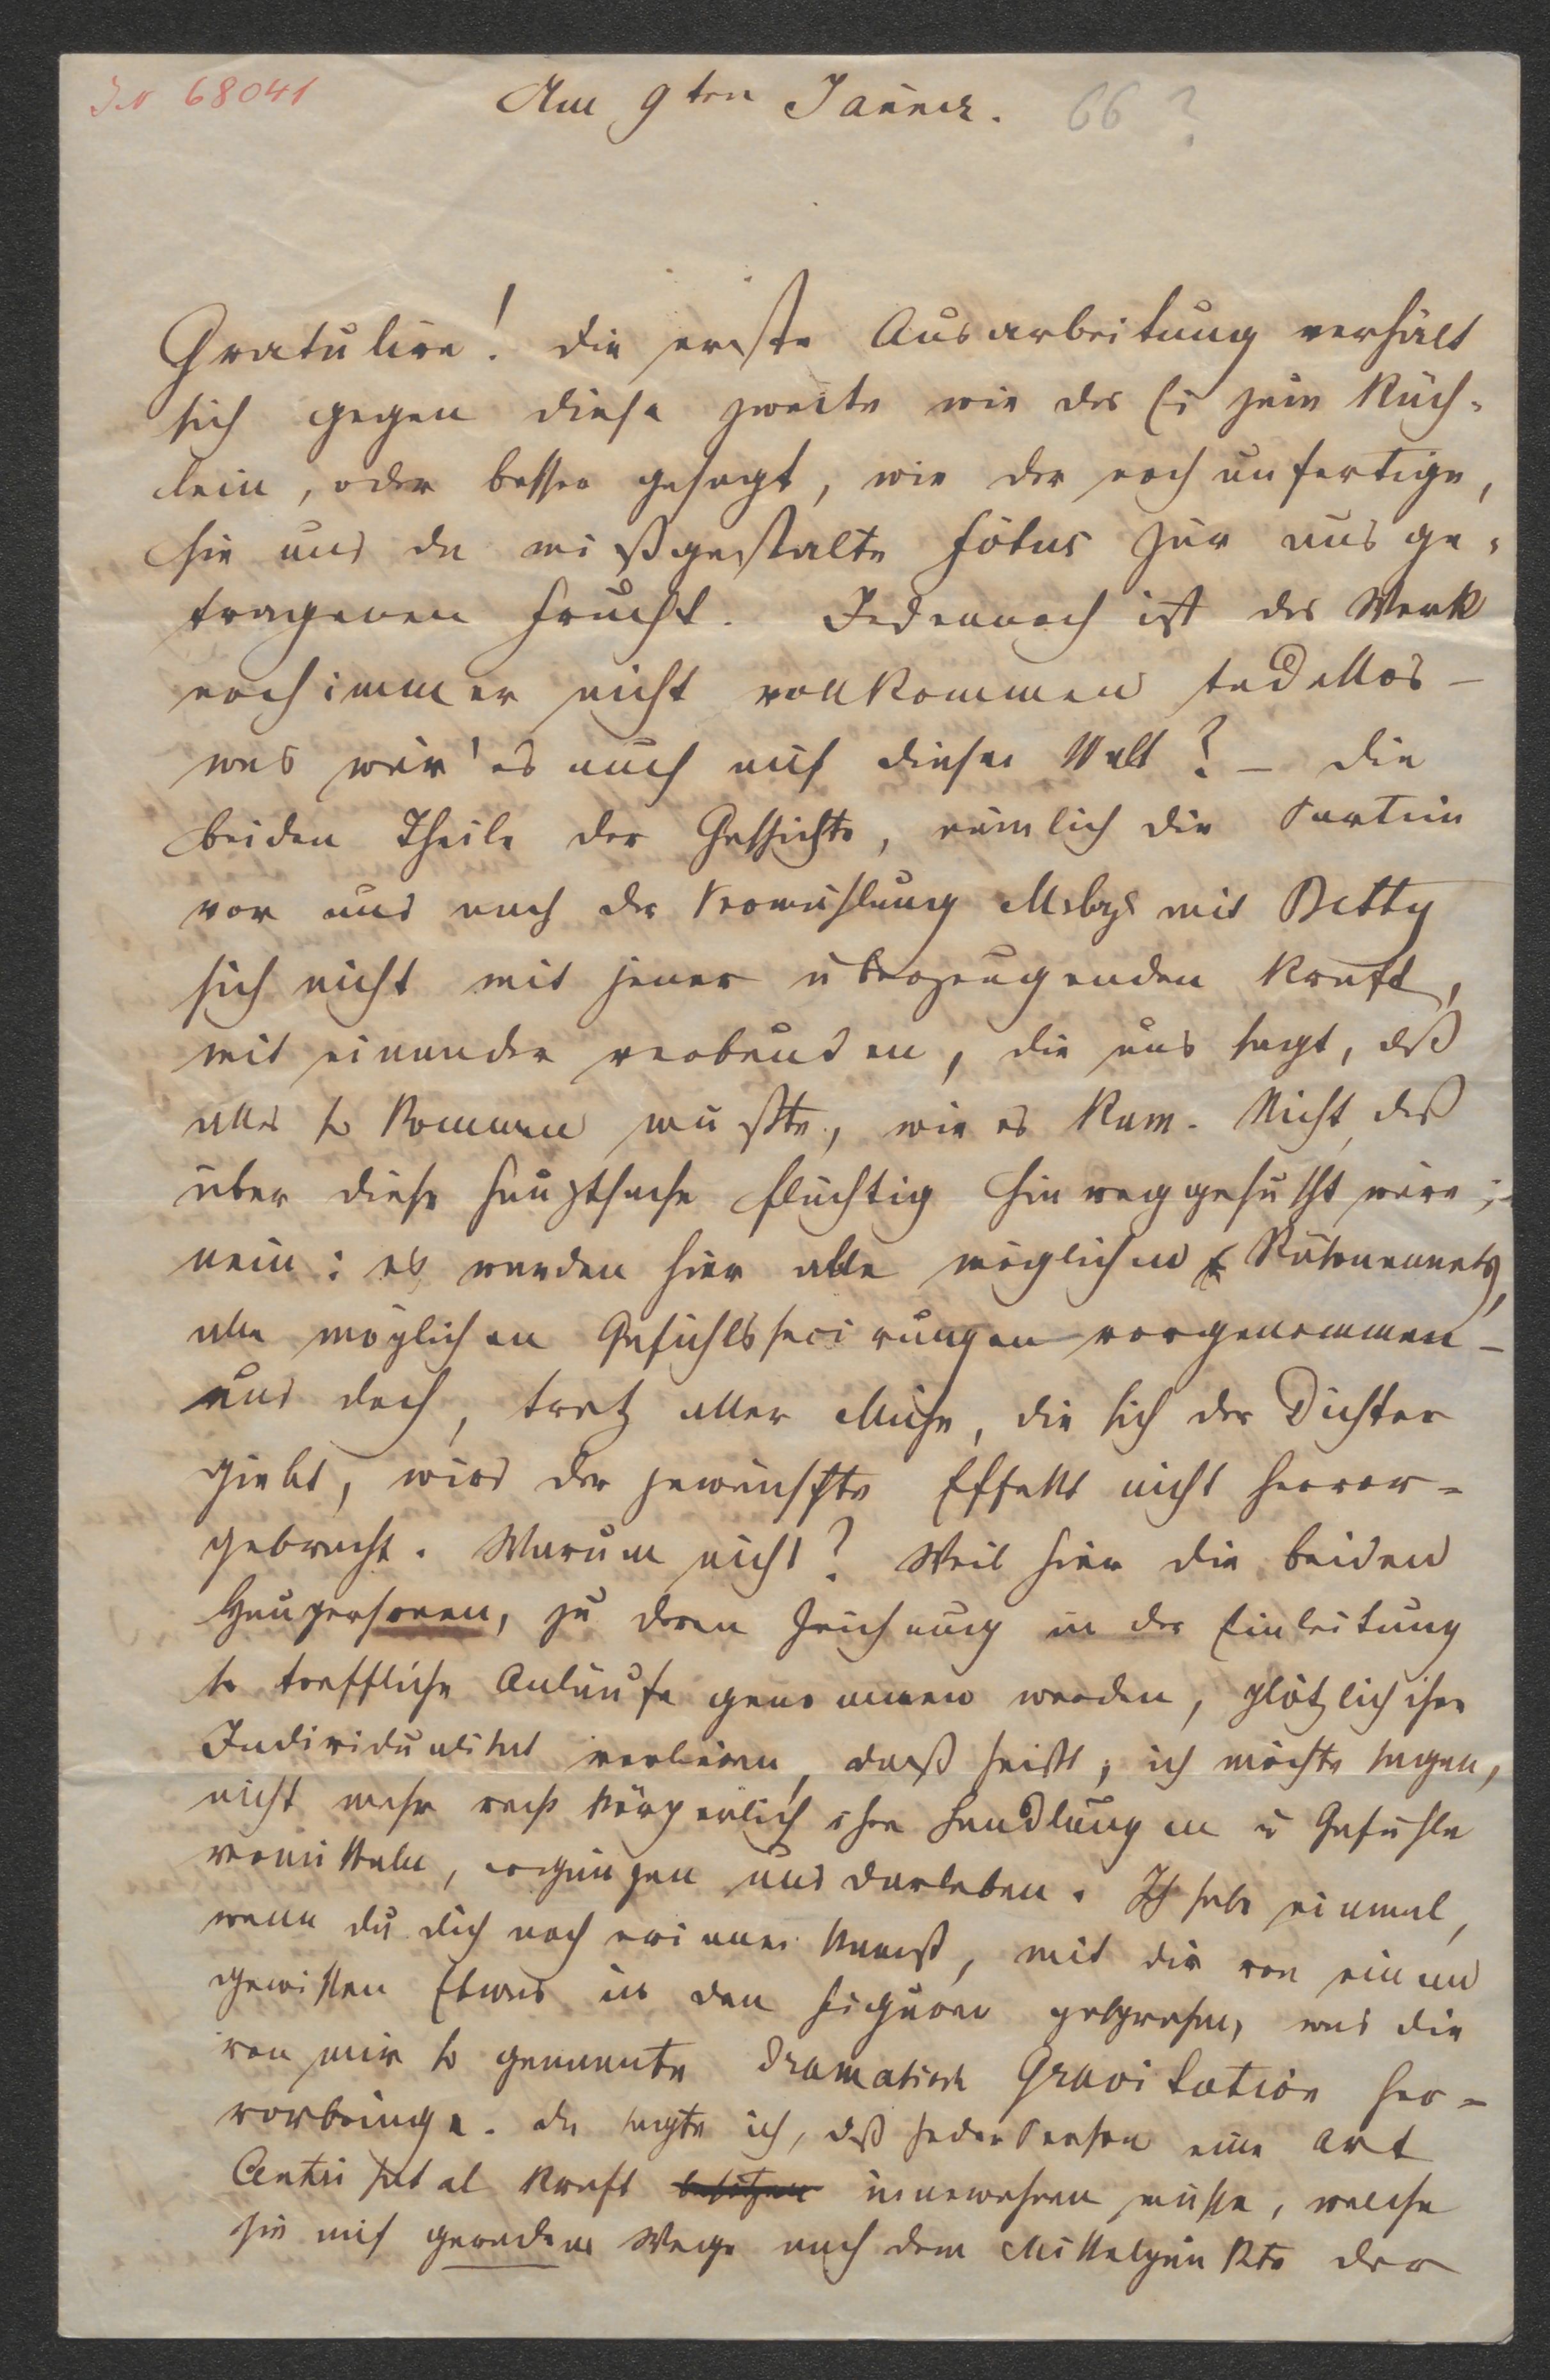 IN 68041
Am 9ten Jänner. 66?
Gratulire! Die erste Ausarbeitung verhält
sich gegen diese zweite wie das Ei zum Küch-
lein, oder besser gesagt, wie der noch unfertige,
hie und da mißgestalte Fötus zur ausge-
tragenen Frucht. Jedennoch ist das Werk
noch immer nicht vollkommen tadellos –
was wär' es auch auf dieser Welt? – Die
beiden Theile der Geschichte, nämlich die Partein
vor und nach der Vermählung mit Betty
sich nicht mit jener überzeugenden Kraft,
mit einander verbunden, die uns sagt, daß
alles so kommen mußte, wie es kam. Nicht, daß
über diese Hauptsache flüchtig hinweggehuscht wäre;
nein: es werden hier alle möglichen
alle möglichen Gefühlssecirungen vorgenommen –
und doch, trotz aller Mühe, die sich der Dichter
giebt, wird der gewünschte Effekt nicht hervor-
gebracht. Warum nicht? Weil hier die beiden
Haupersonen, zu deren Zeichnung in der Einleitung
so treffliche Anläufe genommen werden, plötzlich ihre
Individualität verlieren, daß heißt, ich möchte sagen,
nicht mehr recht körperlich ihre Handlungen u Gefühle
vermitteln, ergänzen und darleben. Ich habe einmal,
wenn du dich noch erinnern kannst, mit dir von einem
gewissen Etwas in den Figuren gesprochen, was die
von mir so genannte dramatische Gravitation her-
vorbringe. Da sagte ich, daß jeder Person eine Art
Centripetal Kraft besitzen innewohnen müsse, welche
sie auf geradem Wege nach dem Mittelpunkte der